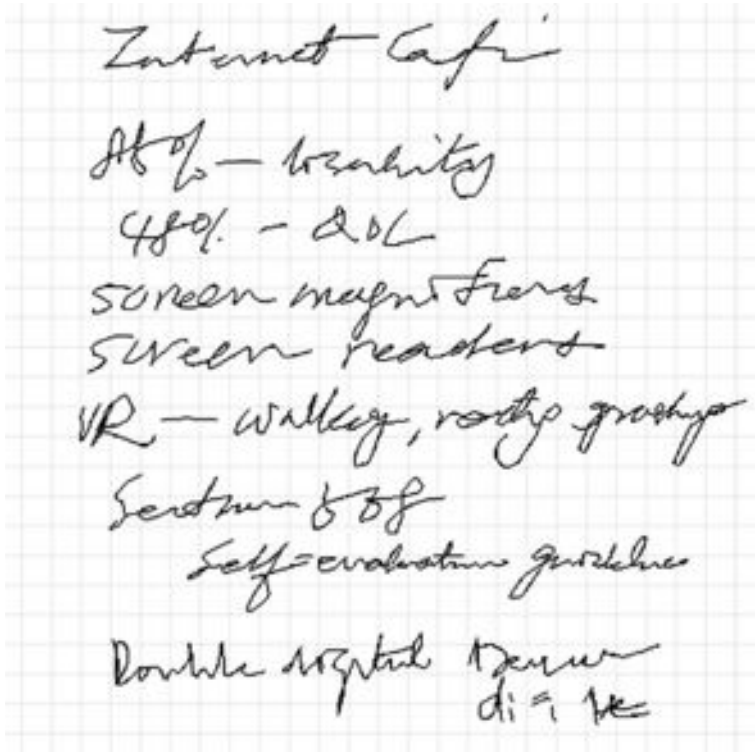 Internet Cafe
85% - disability
48% - QOL
screen magnifiers
screen readers
VR - walking, reading, groups
Section 508
Self-evaluation guidelines
Double digital